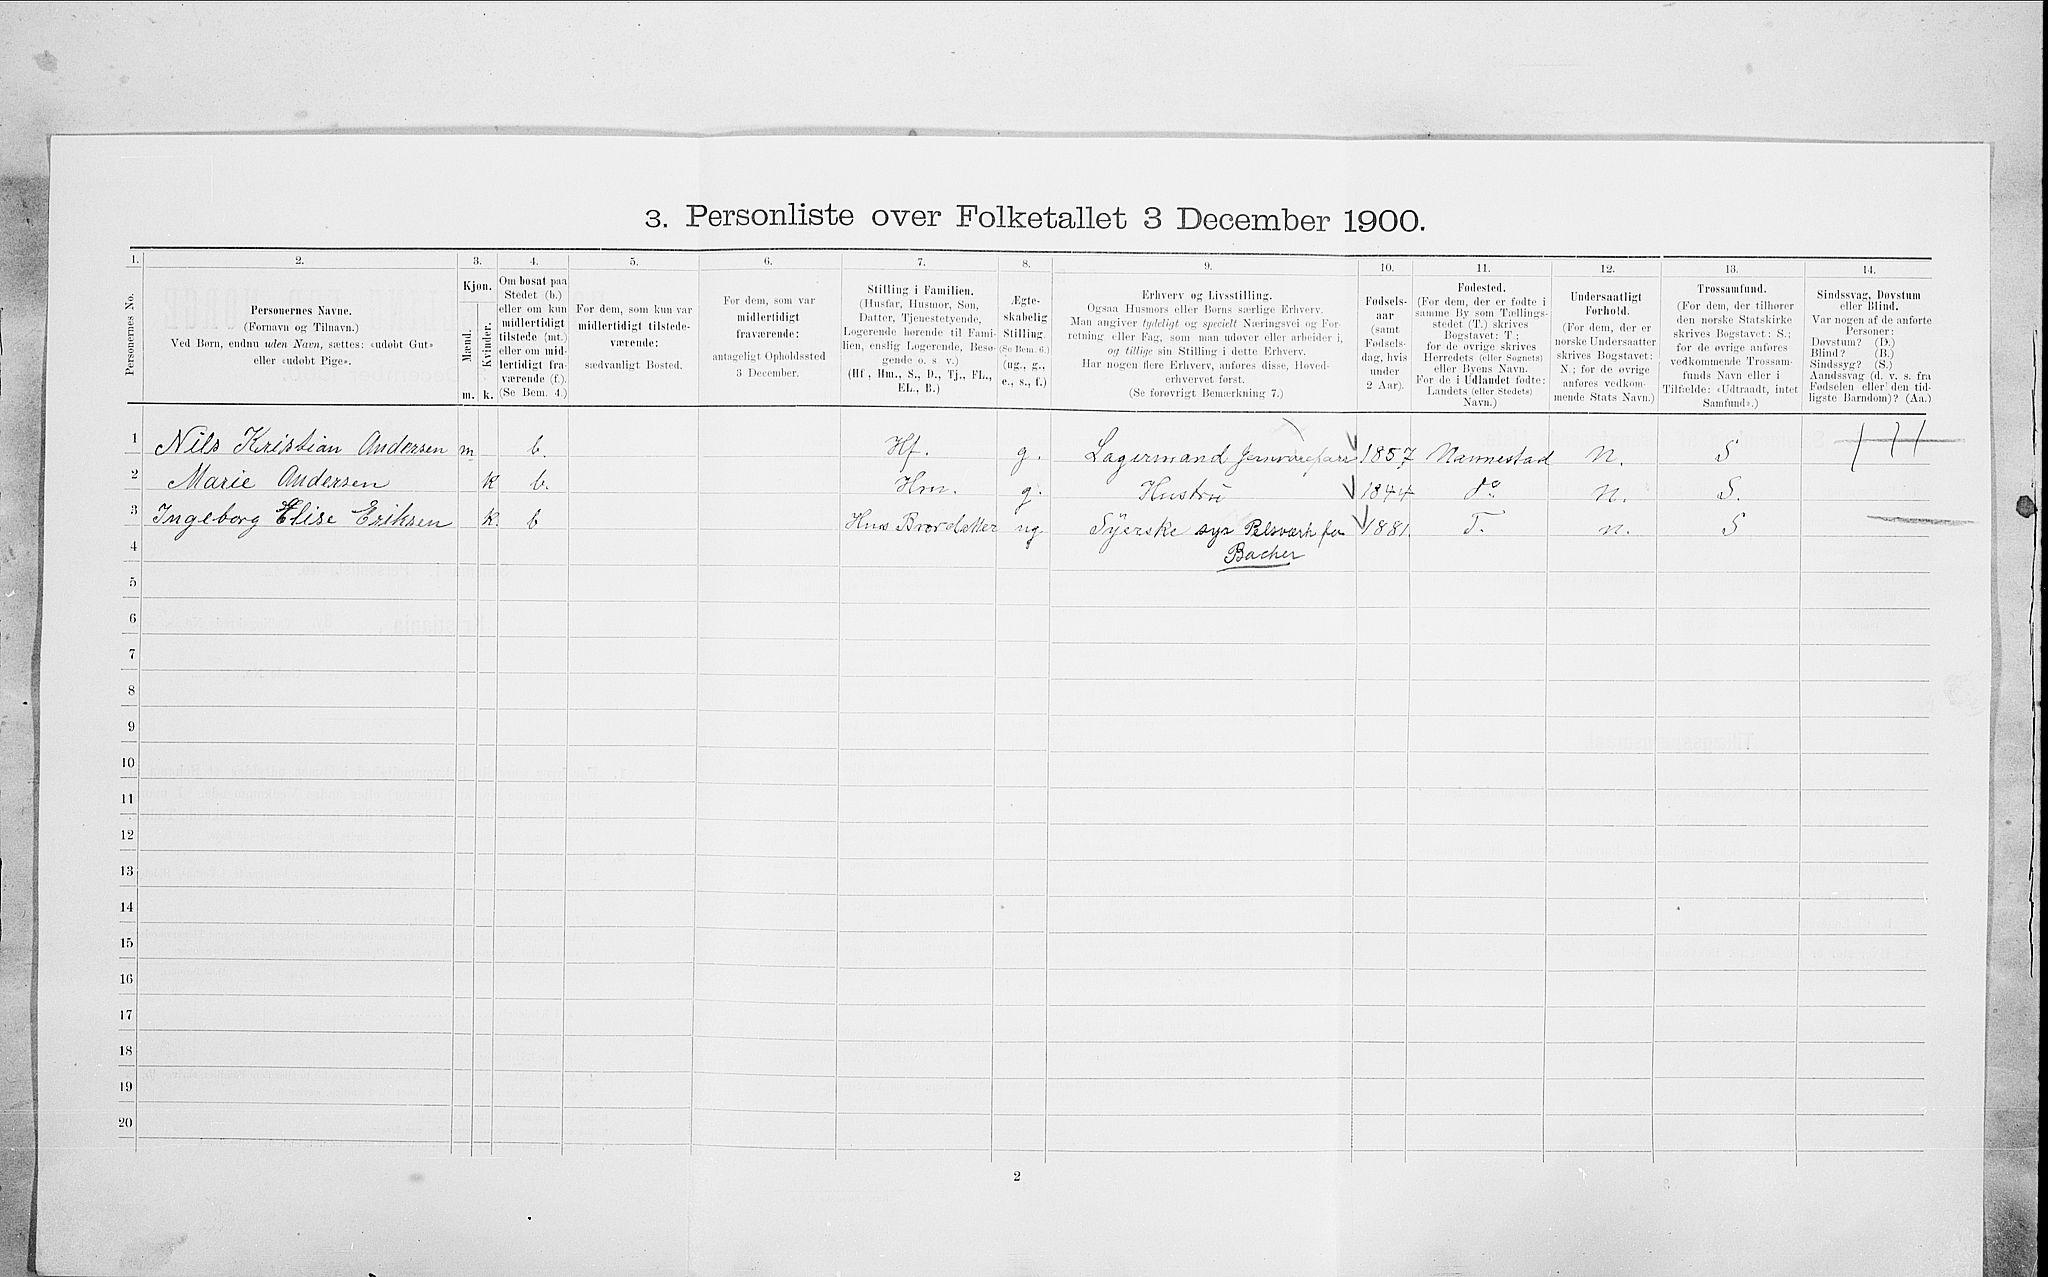 3. Personliste over Folketallet 3 December 1900.
1. 2. 3. 4. 5. 6. 7. 8. 9. 10. 11. 12. 13. 14.
Personernes No.
Personernes Navne.
(Fornavn og Tilnavn.)
Ved Børn, endnu uden Navn, sættes: «udøbt Gut»
eller «udøbt Pige».
Kjøn.
Mænd.
Kvinder.
m. k.
Om bosat paa
Stedet (b.)
eller om kun
midlertidigt
tilstede (mt.)
eller om mid-
lertidigt fra-
værende (f.).
(Se Bem. 4.)
For dem, som kun var
midlertidigt tilstede-
værende:
sædvanligt Bosted.
For dem, som var
midlertidigt
fraværende:
antageligt Opholdssted
3 December.
Stilling i Familien.
(Husfar, Husmor, Søn,
Datter, Tjenestetyende,
Logerende hørende til Fami-
lien, enslig Logerende, Besø-
gende o. s. v.)
(Hf., Hm., S., D., Tj., FL.,
EL., B.)
Ægte-
skabelig
Stilling.
(Se Bem. 6.)
(ug., g.,
e., s., f.)
Erhverv og Livsstilling.
Ogsaa Husmors eller Børns særlige Erhverv.
Man angiver tydeligt og specielt Næringsvei og For-
retning eller Fag, som man udøver eller arbeider i,
og tillige sin Stilling i dette Erhverv.
Har nogen flere Erhverv, anføres disse, Hoved-
erhvervet først.
(Se forøvrigt Bemærkning 7.)
Fødsels-
aar
(samt
Fødsels-
dag, hvis
under
2 Aar).
Fødested.
(For dem, der er fødte i
samme By som Tællings-
stedet (T.) skrives
Bogstavet: T;
for de øvrige skrives
Herredets (eller Sognets)
eller Byens Navn.
For de i Udlandet fødte:
Landets (eller Stedets)
Navn.)
Undersaatligt
Forhold.
(For dem, der er
norske Undersaatter
skrives Bogstavet:
N.; for de øvrige
anføres vedkom-
mende Stats Navn.)
Trossamfund.
(For dem, der tilhører
den norske Statskirke
skrives Bogstavet: S.;
for de øvrige anføres
vedkommende Trossam-
funds Navn eller i
Tilfælde: «Udtraadt, intet
Samfund».)
Sindssvag, Døvstum
eller Blind.
Var nogen af de anførte
Personer:
Døvstum? (D.)
Blind? (B.)
Sindssyg? (S.)
Aandssvag (d. v. s. fra
Fødselen eller den tid-
ligste Barndom)? (Aa.)
1 Nils Kristian Andersen m b. Hf. g. Lagermand 1857 Nannestad N. S
2 Marie Andersen k b. Hm. g. Hustru 1844 do. n. S.
3 Ingeborg Elise Eriksen k. b Hus Brordatter ug Syerske syr Pelsværk for 1881. T. n. S
Bacher
4
5
6
7
8
9
10
11
12
13
14
15
16
17
18
19
20
2